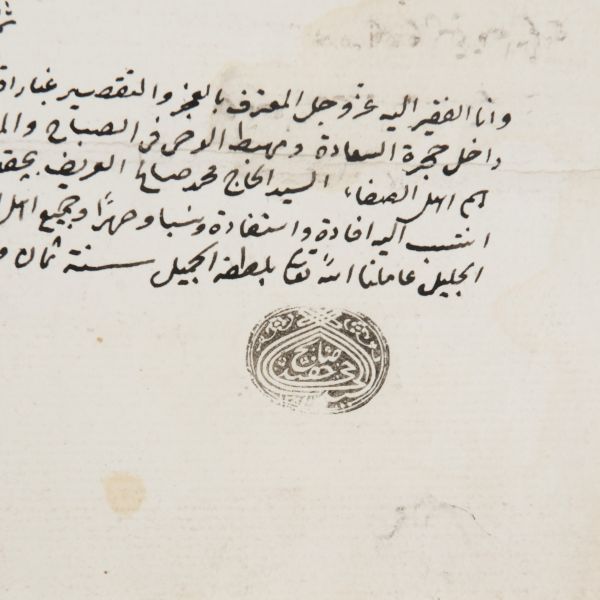 وانا الفقير اليه عز وجل المعترف بالعجز والتقصير غبار
داخل حجرة السعادة ومهبط الوحي في الصباح
اهل الصفا، السيد الحاج محمد صالح
انتسب اليه افادة واستفادة ونسبا وصهرا وجميع اهل
الجليل عاملنا الله تعالى بلطفه الجميل سنة ثمان و